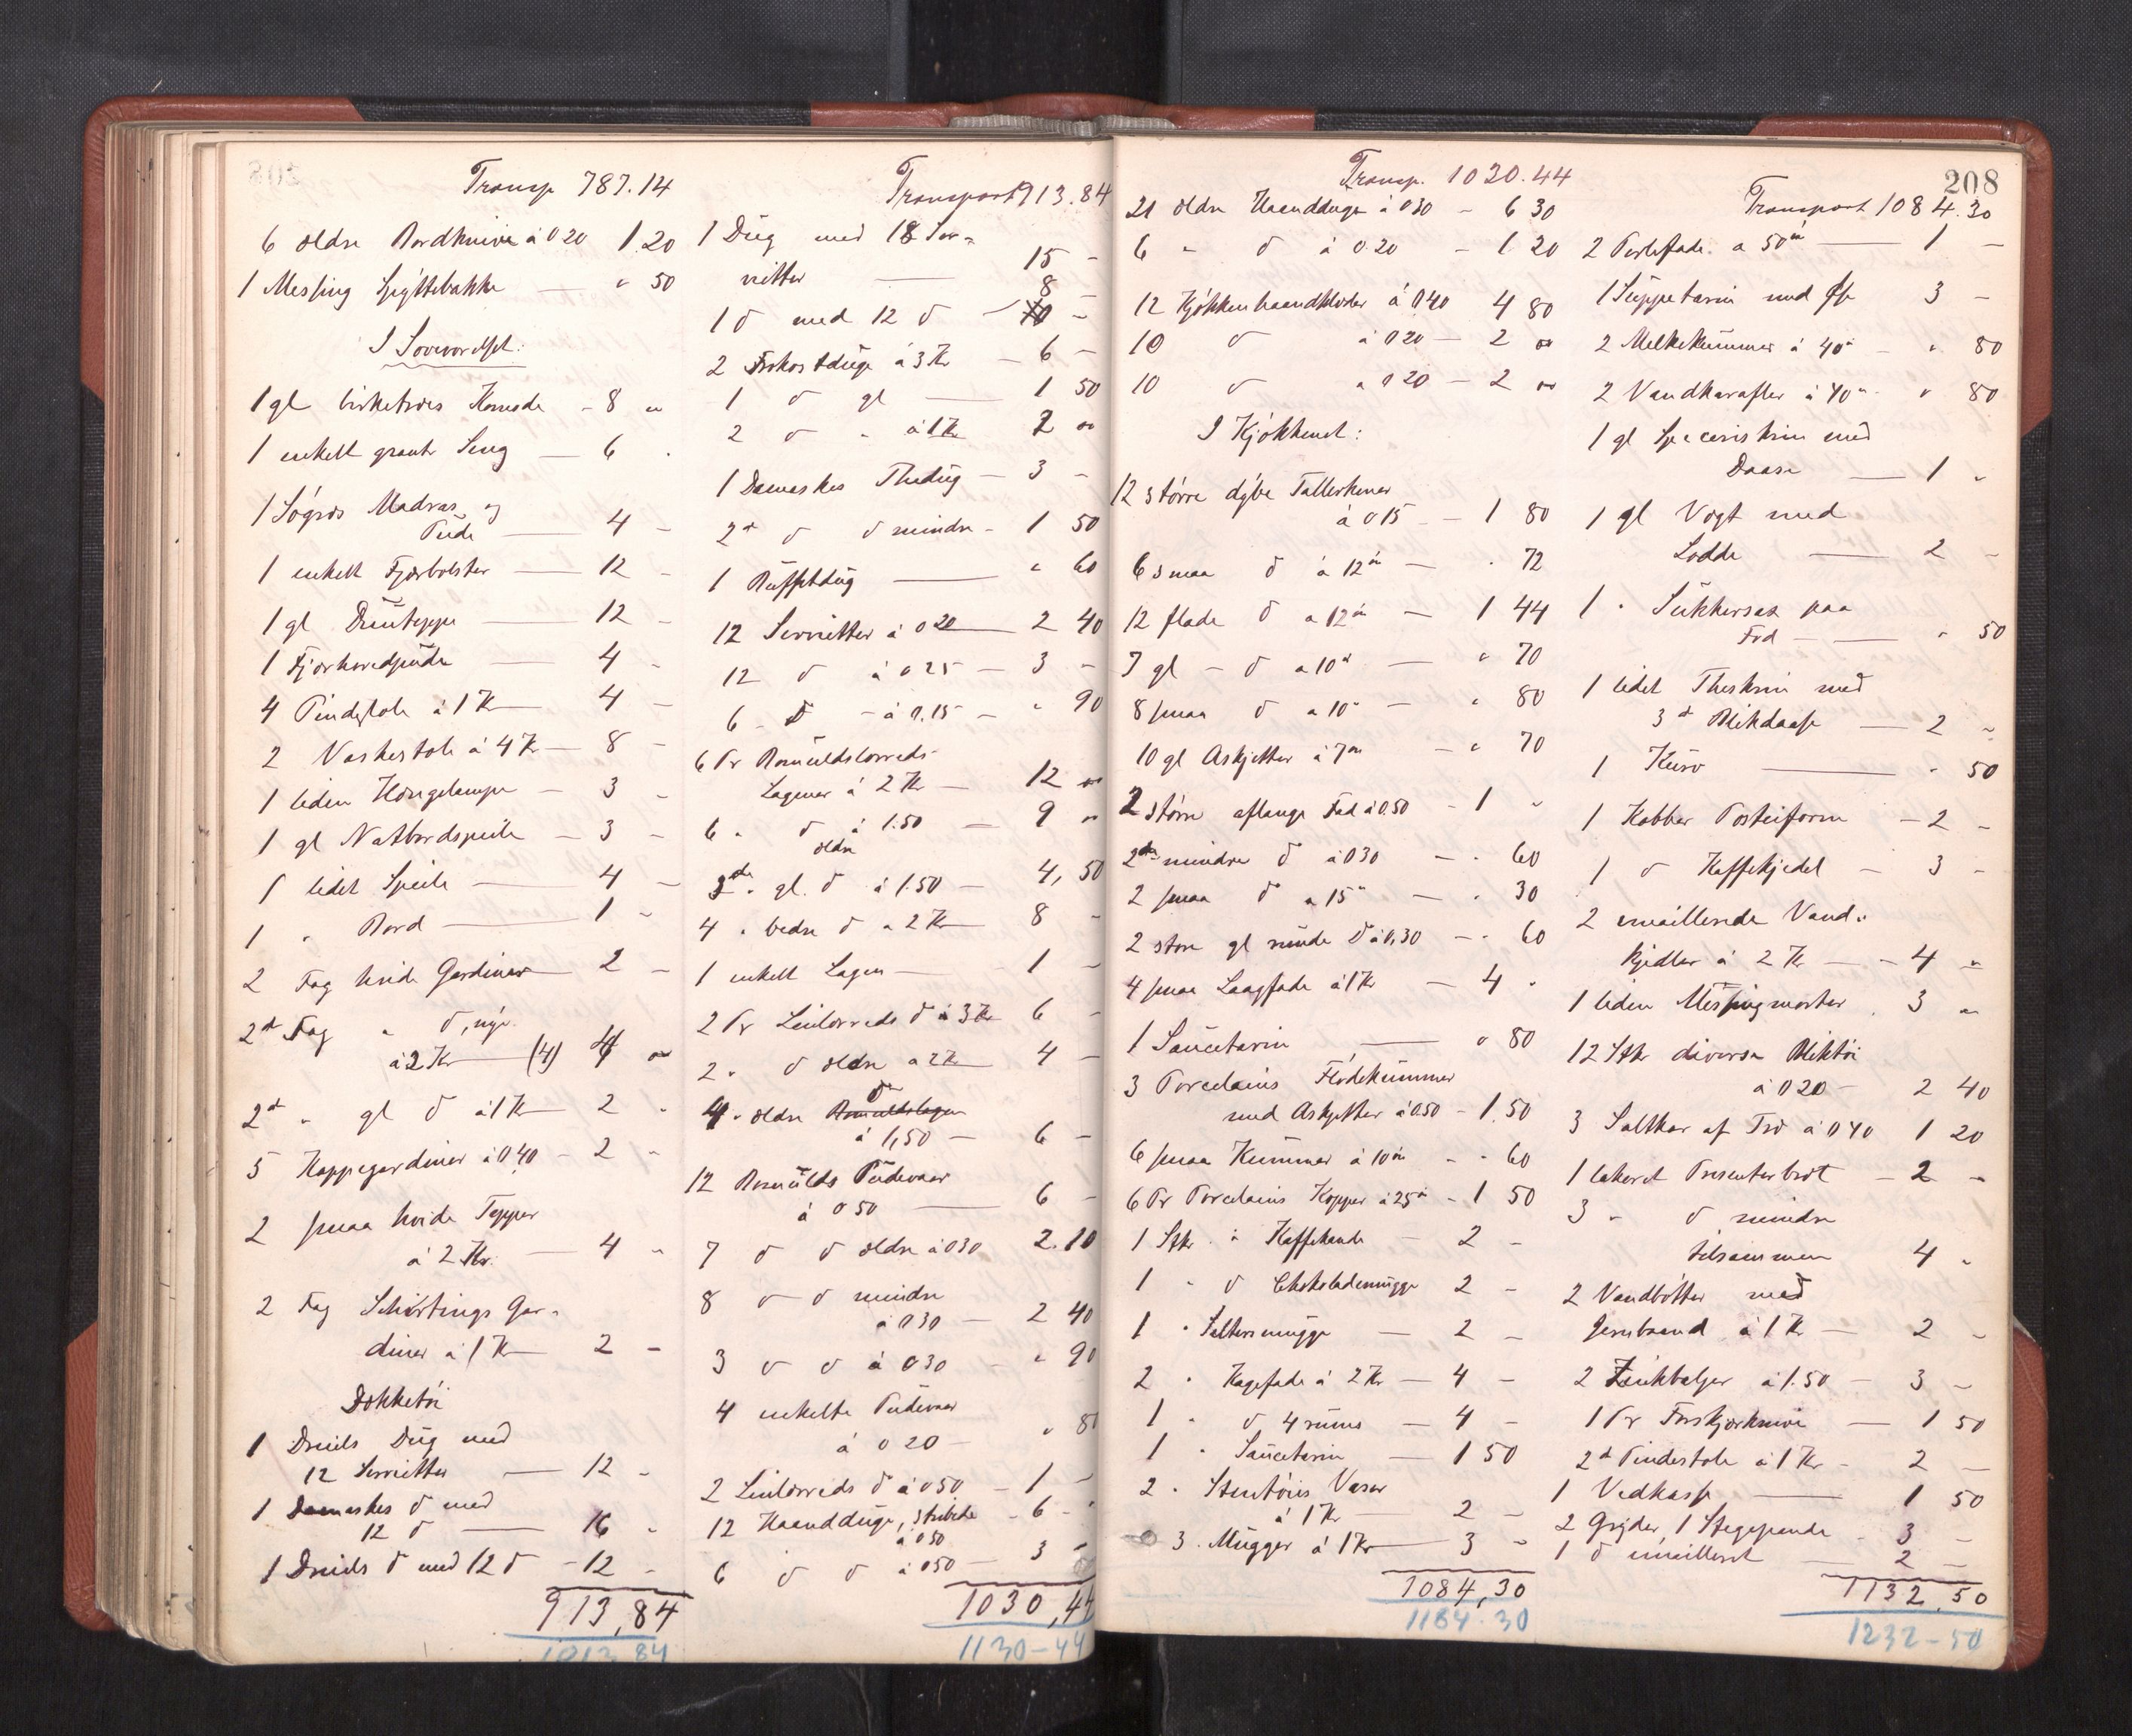 Transp 787.14
6 ældre Bordknive à 0 20 1.20
1 Messing Spyttebakke — " 50
I Soveværelset:
1 gl birketræes Komode - 8 "
1 enkelt graat Seng — 6 "
1 Søgræs Madras og
Pude — 4 -
1 enkelt Fjærbolster — 12 -
1 gl Duntæppe — 12 -
1 Fjærhovedpude — 4 -
4 Pindestole à 1 Kr — 4 -
2 Vaskestole à 4 Kr — 8 -
1 liden Hængelampe — 3 -
1 gl Natbordspeile — 3 -
1 lidet Speile — 4 -
1 " Bord — 1 -
2 Fag hvide Gardiner — 2 -
2 Fag " d, nye
à 2 Kr — (4) 4 "
2 " gl d à 1 Kr — 2 -
5 Kappegardiner à 0,40 - 2 -
2 smaa hvide Tepper
à 2 Kr. — 4 "
2 Fag Schirtings Gar-
diner à 1 Kr — 2 -
Dækketøi
1 Dreils Dug med
12 Servietter — 12 -
1 Damaskes d med
12 d — 16 -
1 Dreils d med 12 d - 12 -
913,84
1013 84
Transport 913.84
1 Dug med 18 Ser-
vietter — 15 -
8
1 d med 12 d - 10 -
2 Frokostduge à 3 Kr — 6 -
1 d gl — 1 50
2 d " à 1 Kr 2 "
1 Damaskes Thedug — 3 -
2 d d mindre - 1 50
1 Buffetdug — " 60
12 Servietter à 0 20 — 2 40
12 d à 0 25 — 3 -
6 - d - à 0.15 — " 90
6 Pr Bomuldslærreds
Lagener à 2 Kr — 12 "
6 " d à 1.50 — 9 "
ældre
3 " gl. d à 1.50 — 4,50
4 " bedre d à 2 Kr — 8 -
1 enkelt Lagen — 1 -
2 Pr Linlærreds d à 3 Kr 6 -
2 " d ældre a 2 Kr 4 -
d
4 " ældre Bomuldslagen
à 1,50 — 6 -
12 Bomulds Pudevaar
à 0 50 — 6 -
7 d d ældre à 0 30 2.10
8 d d mindre
à 0 30 — 2 40
3 d d à 0 30 - " 90
4 enkelte Pudevaar
à 0 20 — " 80
2 Linlærreds d à 0 50 - 1 -
12 Haandduge, stribede - 6 -
à 0 50
6 d d à 0 50 — 3 -
1030,44
1130-44
208
Transp. 1020.44
21 ældre Haandduge à 0 30 - 6 30
6 " d à 0.20 - 1 20
12 Kjøkkenhaandklæder à 0 40 4 80
10 d à 0 20 - 2 "
10 d a 0 20 - 2 "
I Kjøkkenet:
12 større dybe Tallerkener
à 0 15 - 1 80
6 smaa d à 12 ør — " 72
12 flade d a 12 ør — 1 44
7 gl - d a 10 ør — " 70
8 smaa d a 10 " — " 80
10 gl Askjetter à 7 ør — " 70
2 større aflange Fad à 0.50 - 1 "
2 mindre d à 0 30 — " 60
2 smaa d a 15 " — " 30
2 store gl runde d à 0,30 — " 60
4 smaa Laagfade à 1 Kr — 4 "
1 Saucetærin — " 80
3 Porcelains Flødekummer
med Askjetter à 0.50 - 1.50
6 smaa Kummer à 10 ør - " 60
6 Pr Porcelains Kopper à 25 ør - 1 50
1 Stk " Kaffekande — 2 -
1 " d Chokolademugge 2 -
1 " Seltersmugge — 2 -
2 " Kagefade à 2 Kr — 4 -
1 " d 4 rums — 4 -
1 " Saucetærin — 1 50
2 " Stentøies Vaser
à 1 Kr — 2 -
3 " Mugger à 1 Kr — 3 -
1084,30
1184.30
Transport 1084.30
2 Postefade a 50 ør — 1 -
1 Suppetærin med 3 -
2 Melkekummer à 40 " - " 80
2 Vandkarafler à 40 " - " 80
1 gl Speceriskrin med
Daase — 1 "
1 gl Vægt med
Lodde — 2 -
1 " Sukkersax paa
Fod — " 50
1 lidet Theskrin med
3 Blikdaase — 2 -
1 Kurv — " 50
1 Kobber Posteiform — 2 -
1 d Kaffekjedel — 3 -
2 emaillerede Vand-
kjedler à 2 Kr — 4 "
1 liden Messingmorter 3 "
12 Stk diverse Bliktøi
à 0 20 - 2 40
3 Saltkar af Træ à 0 40 1 20
1 lakeret Presenterbræt - 2 -
3 " d mindre
tilsammen 4 -
2 Vandbøtter med
Jernbaand à 1 Kr — 2 -
2 Zinkbaljer à 1.50 — 3 -
1 Pr Forskjærknive — 1 50
2 Pindestole à 1 Kr - 2 —
1 Vedkasse — 1 50
2 Gryder, 1 Stegepande - 3 -
1 d emailleret — 2 -
1132.50
1232-50